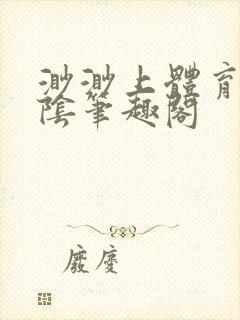 渺渺上體育
陰筆趣閣
廢慶